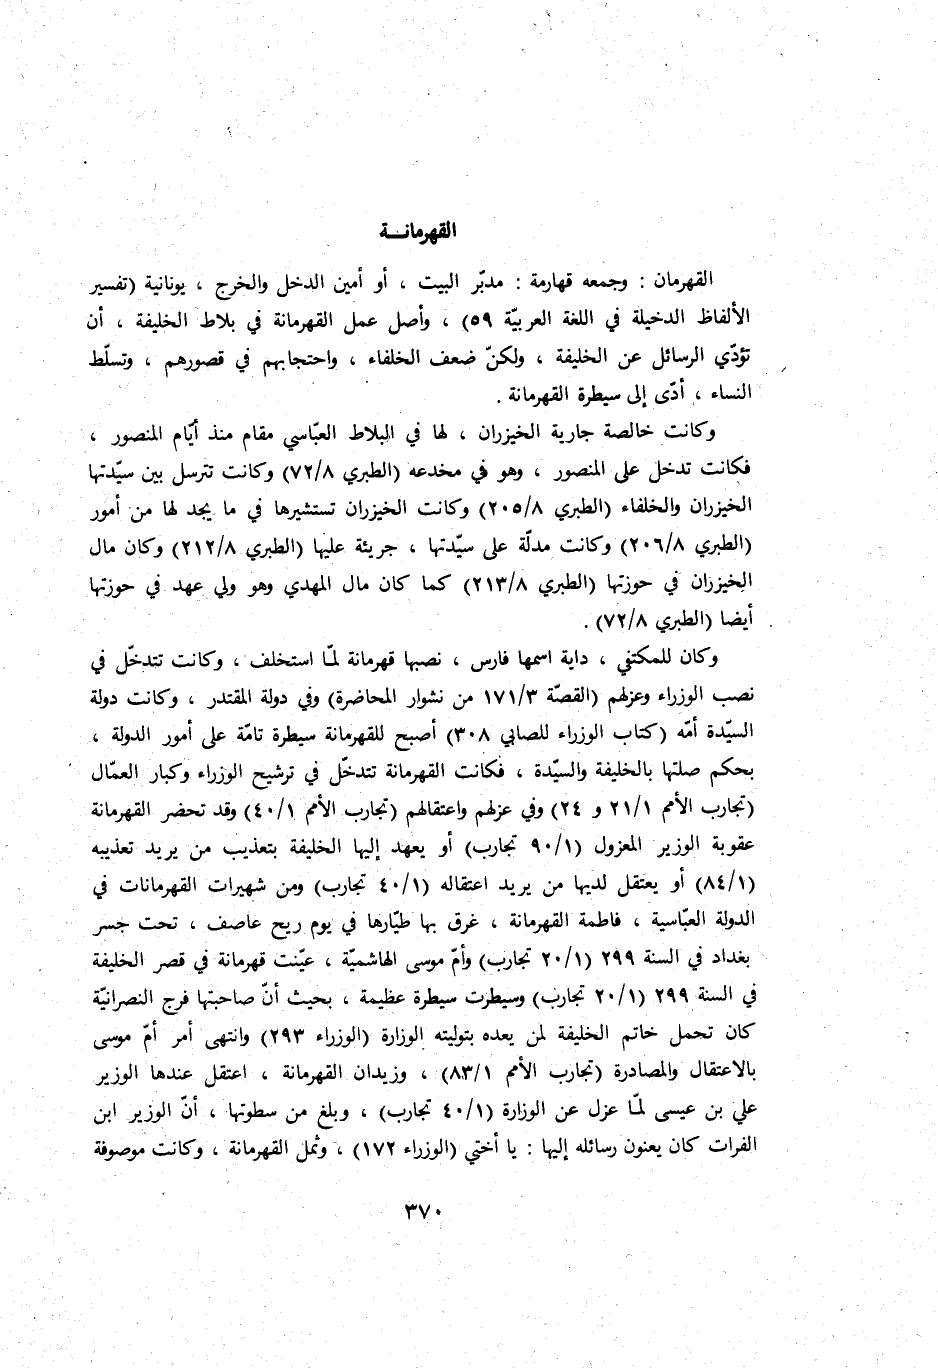 القهرمانــة
القهرمان : وجمعه قهارمة : مدبّر البيت ، أو أمين الدخل والخرج ، يونانية (تفسير
الألفاظ الدخيلة في اللغة العربيّة ٥٩) ، وأصل عمل القهرمانة في بلاط الخليفة ، أن
تؤدّي الرسائل عن الخليفة ، ولكنّ ضعف الخلفاء ، واحتجابهم في قصورهم ، وتسلّط
النساء ، أدّى إلى سيطرة القهرمانة .
وكانت خالصة جارية الخيزران ، لها في البلاط العبّاسي مقام منذ أيّام المنصور ،
فكانت تدخل على المنصور ، وهو في مخدعه (الطبري ٧٢/٨) وكانت تترسل بين سيّدتها
الخيزران والخلفاء (الطبري ٢٠٥/٨) وكانت الخيزران تستشيرها في ما يجد لها من أمور
(الطبري ٢٠٦/٨) وكانت مدلّة على سيّدتها ، جريئة عليها (الطبري ٢١٢/٨) وكان مال
الخيزران في حوزتها (الطبري ٢١٣/٨) كما كان مال المهدي وهو ولي عهد في حوزتها
أيضا (الطبري ٧٢/٨) .
وكان للمكتفي ، داية اسمها فارس ، نصبها قهرمانة لمّا استخلف ، وكانت تتدخّل في
نصب الوزراء وعزلهم (القصّة ١٧١/٣ من نشوار المحاضرة) وفي دولة المقتدر ، وكانت دولة
السيّدة أمّه (كتاب الوزراء للصابي ٣٠٨) أصبح للقهرمانة سيطرة تامّة على أمور الدولة ،
بحكم صلتها بالخليفة والسيّدة ، فكانت القهرمانة تتدخّل في ترشيح الوزراء وكبار العمّال
(تجارب الأمم ٢١/١ و ٢٤) وفي عزلهم واعتقالهم (تجارب الأمم ٤٠/١) وقد تحضر القهرمانة
عقوبة الوزير المعزول (٩٠/١ تجارب) أو يعهد إليها الخليفة بتعذيب من يريد تعذيبه
(٨٤/١) أو يعتقل لديها من يريد اعتقاله (٤٠/١ تجارب) ومن شهيرات القهرمانات في
الدولة العبّاسية ، فاطمة القهرمانة ، غرق بها طيّارها في يوم ريح عاصف ، تحت جسر
بغداد في السنة ٢٩٩ (٢٠/١ تجارب) وأمّ موسى الهاشميّة ، عيّنت قهرمانة في قصر الخليفة
في السنة ٢٩٩ (٢٠/١ تجارب) وسيطرت سيطرة عظيمة ، بحيث أنّ صاحبتها فرج النصرانيّة
كان تحمل خاتم الخليفة لمن يعده بتوليته الوزارة (الوزراء ٢٩٣) وانتهى أمر أمّ موسى
بالاعتقال والمصادرة (تجارب الأمم ٨٣/١) ، وزيدان القهرمانة ، اعتقل عندها الوزير
علي بن عيسى لمّا عزل عن الوزارة (٤٠/١ تجارب) ، وبلغ من سطوتها ، أنّ الوزير ابن
الفرات كان يعنون رسائله إليها : يا أختي (الوزراء ١٧٢) ، وثمل القهرمانة ، وكانت موصوفة
٣٧٠